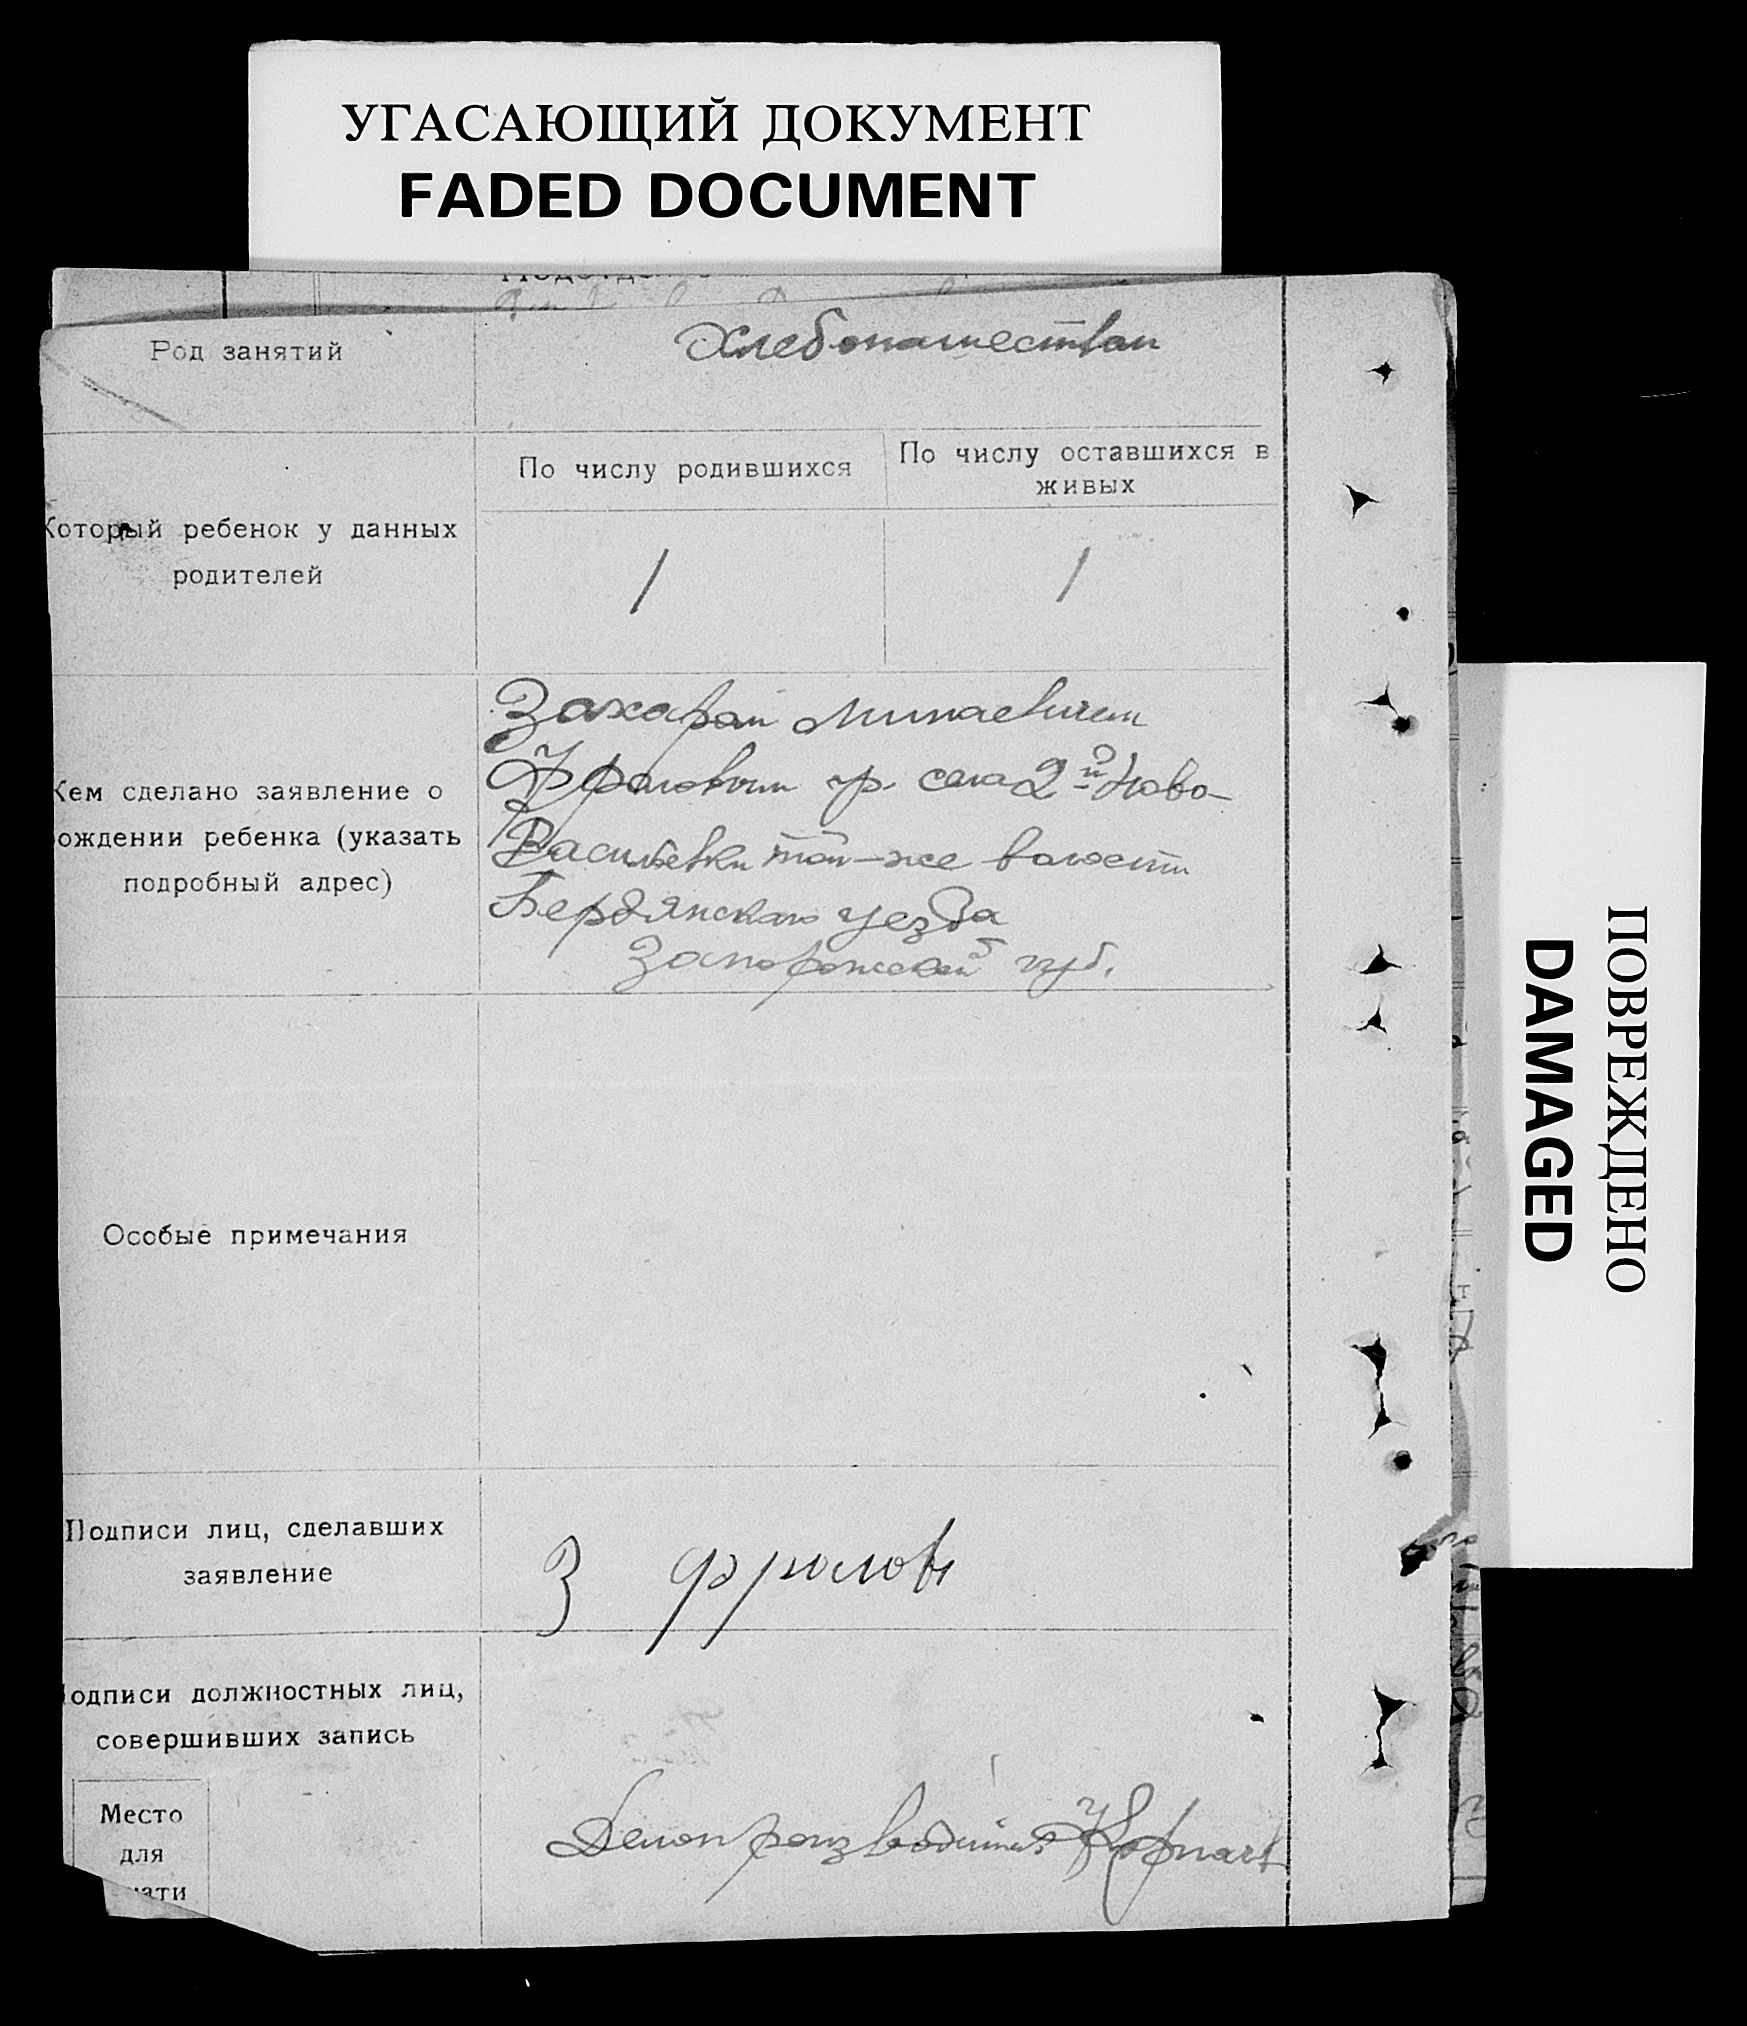 УГАСАЮЩИЙ ДОКУМЕНТ
FADED DOCUMENT
Род занятий
Хлебопашеством
Который ребенок у данных
родителей
По числу родившихся
По числу оставшихся в
живых
1
1
Кем сделано заявление о
рождении ребенка (указать
подробный адрес)
Захаром Минаевичем
Фроловым гр. села 2й Ново-
Васильевки той-же волости
Бердянскаго уезда
Запорожской губ.
Особые примечания
Подписи лиц, сделавших
заявление
З Фролов
Подписи должностных лиц,
совершивших запись
Место
для
печати
Делопроизводитель
ПОВРЕЖДЕНО
DAMAGED